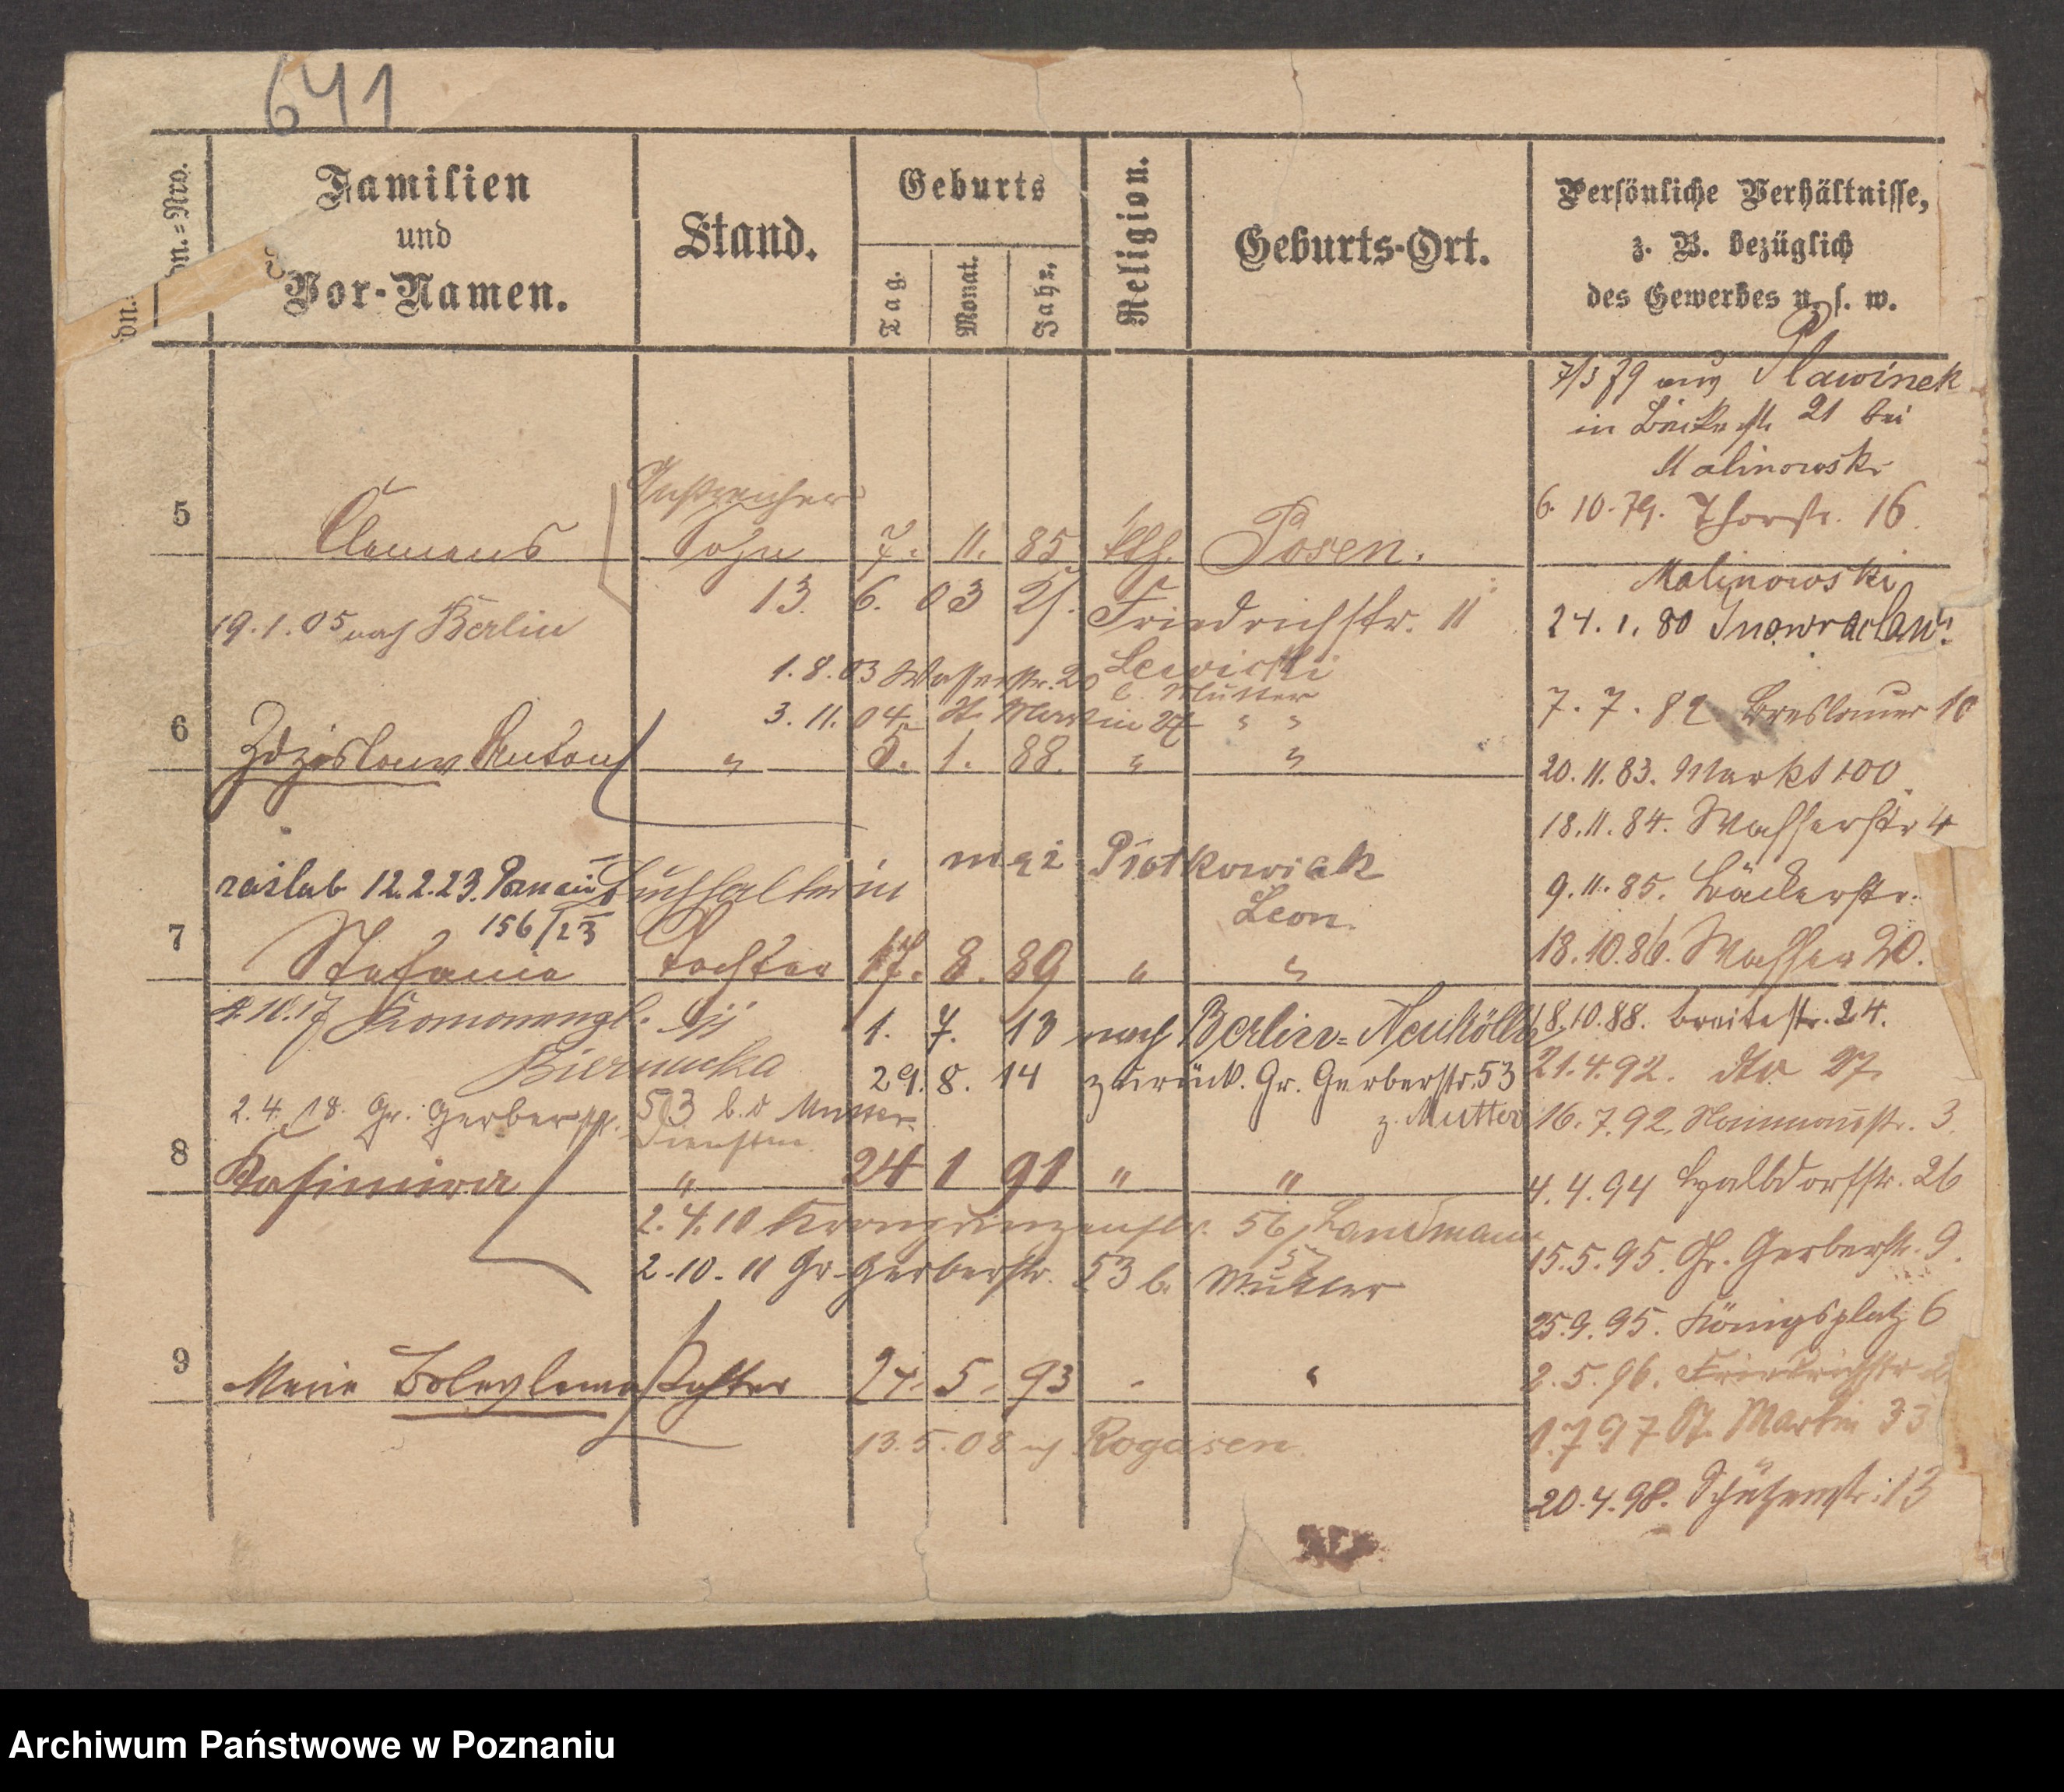 641
dn.=Nro.
dn.
Familien
und
Vor-Namen.
Stand.
Geburts
Tag.
Monat.
Jahr.
Religion.
Geburts-Ort.
Persönliche Verhältnisse,
z. B. bezüglich
des Gewerbes u. s. w.
7/3 79 aus Slawinek
in 21 bei
Malinowski
6. 10. 79. Thorstr. 16.
Malinowski
24. 1. 80 Inowraclaw.
7. 7. 82. Breslauer 10
20. 11. 83. Markt 100
18. 11. 84. Wasserstr 4
9. 11. 85. Bäckerstr.
18. 10. 86. Wasser 20.
18. 10. 88. Breitestr. 24.
21. 4. 92. dto 27
16. 7. 92. Naumannstr. 3.
4. 4. 94 Halbdorfstr. 26
15. 5. 95. Gr. Gerberstr. 9.
25. 9. 95. Königsplatz 6
2. 5. 96. Friedrichstr
1. 7 97 St. Martin 33
20. 4. 98. Schützenstr. 13
Anstreicher
5 Clemens Sohn 7. 11. 85 kth. Posen.
13. 6. 03 Friedrichstr. 11
19. 1. 05 nach Berlin
1. 8. 03 Wasserstr. 20 Lewicki
b. Mutter
3. 11. 04 St. Martin 27 " "
6 Zdzislaus Anton " 5. 1. 88. " "
mąż Piotkowiak
Leon.
12. 2. 23. Buchhalterin
156/23
7 Stefanie Tochter 17. 8. 89 " "
4. 10. 17
1. 7. 13 nach Berlin=Neukölln
Biernacka
29. 8. 14 zurück. Gr. Gerberstr. 53
z. Mutter
2. 4. 18. Gr. Gerberstr. 53 b. d Mutter
8 Kasimira " 24 1 91 " "
2. 4. 10 Kronprinzenstr. 56 Landmann
2. 10. 11 Gr. Gerberstr. 53 b. Mutter
9 Marie Tochter 24. 5. 93 - "
13. 5. 08 n Rogasen
Archiwum Państwowe w Poznaniu